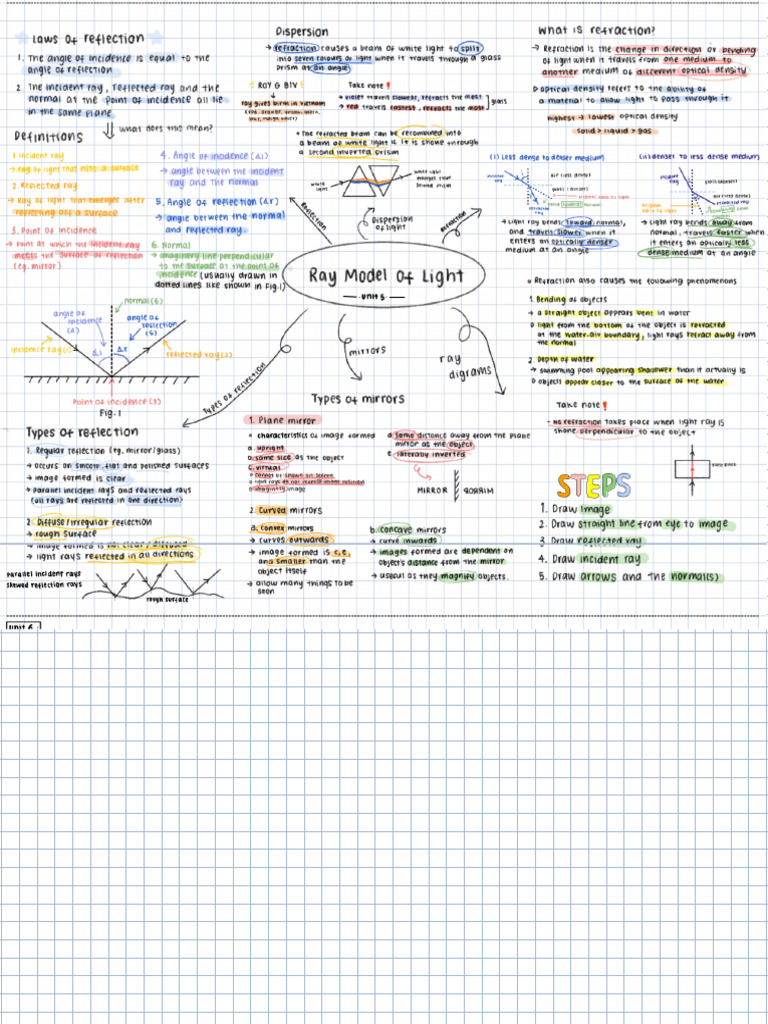 Laws of reflection
1. The angle of incidence is equal to the
angle of reflection
2. The incident ray, reflected ray and the
normal at the point of incidence all lie
in the same plane
what does this mean?
Definitions
1. Incident ray
→ Ray of light that hits a surface
2. Reflected ray
→ Ray of light that emerges after
reflecting off a surface
3. Point of incidence
→ Point at which the incident ray
meets the surface of reflection
(eg. mirror)
4. Angle of incidence (∠i)
→ angle between the incident
ray and the normal
5. Angle of reflection (∠r)
→ angle between the normal
and reflected ray.
6. Normal
→ imaginery line perpendicular
to the surface at the point of
incidence (usually drawn in
dotted lines like shown in Fig.1)
normal (6)
angle of
incidence
(4)
angle of
reflection
(5)
incidence ray (1)
∠i
∠r
reflected ray (2)
Point of incidence (3)
Fig. 1
Dispersion
→ refraction causes a beam of white light to split
into seven colours of light when it travels through a glass
prism at an angle
ROY G BIV
ROY gives birth in vietnam
Take note!
→ violet travels slowest, refracts the most
→ red travels fastest, refracts the most
glass
• The refracted beam can be recombined into
a beam of white light if it is shone through
a second inverted prism
white
light
white light
emerges from
second prism
Reflection
Dispersion
of light
Refraction
Ray Model Of Light
Unit 5
Types of reflection
mirrors
ray
digrams
What is refraction?
→ Refraction is the change in direction or bending
of light when it travels from one medium to
another medium of different optical density
optical density refers to the ability of
a material to allow light to pass through it
highest → lowest optical density
solid > liquid > gas
(i) Less dense to denser medium)
(ii) denser to less dense medium)
→ Light ray bends toward normal,
and travels slower when it
enters an optically denser
medium at an angle
→ Light ray bends away from
normal, travels faster when
it enters an optically less
dense medium at an angle
Refraction also causes the following phenomenons
1. Bending of objects
→ a straight object appears bent in water
light from the bottom of the object is refracted
at the water-air boundary, light rays refract away from
the normal
2. Depth of water
→ swimming pool appearing shallower than it actually is
objects appear closer to the surface of the water
Take note!
- No refraction takes place when light ray is
shone perpendicular to the object
Types of reflection
1. Regular reflection (eg. mirror/glass)
→ occurs on smooth, flat and polished surfaces
→ image formed is clear
→ parallel incident rays and reflected rays
(all rays are reflected in one direction)
2. Diffuse/irregular reflection
→ rough surface
→ image formed is not clear/diffused
→ light rays reflected in all directions
Parallel incident rays
skewed reflection rays
rough surface
Types of mirrors
1. Plane mirror
characteristics of image formed
a. upright
b. same size as the object
c. virtual
cannot be shown on screen
imaginary image
d. same distance away from the plane
mirror as the object
e. laterally inverted
MIRROR
2. Curved mirrors
a. convex mirrors
→ curves outwards
and smaller than the
object itself
→ allow many things to be
seen
b. concave mirrors
→ curve inwards
→ images formed are dependent on
object's distance from the mirror
→ useful as they magnify objects.
STEPS
1. Draw image
2. Draw straight line from eye to image
3. Draw reflected ray
4. Draw incident ray
5. Draw arrows and the normal(s)
Unit 6